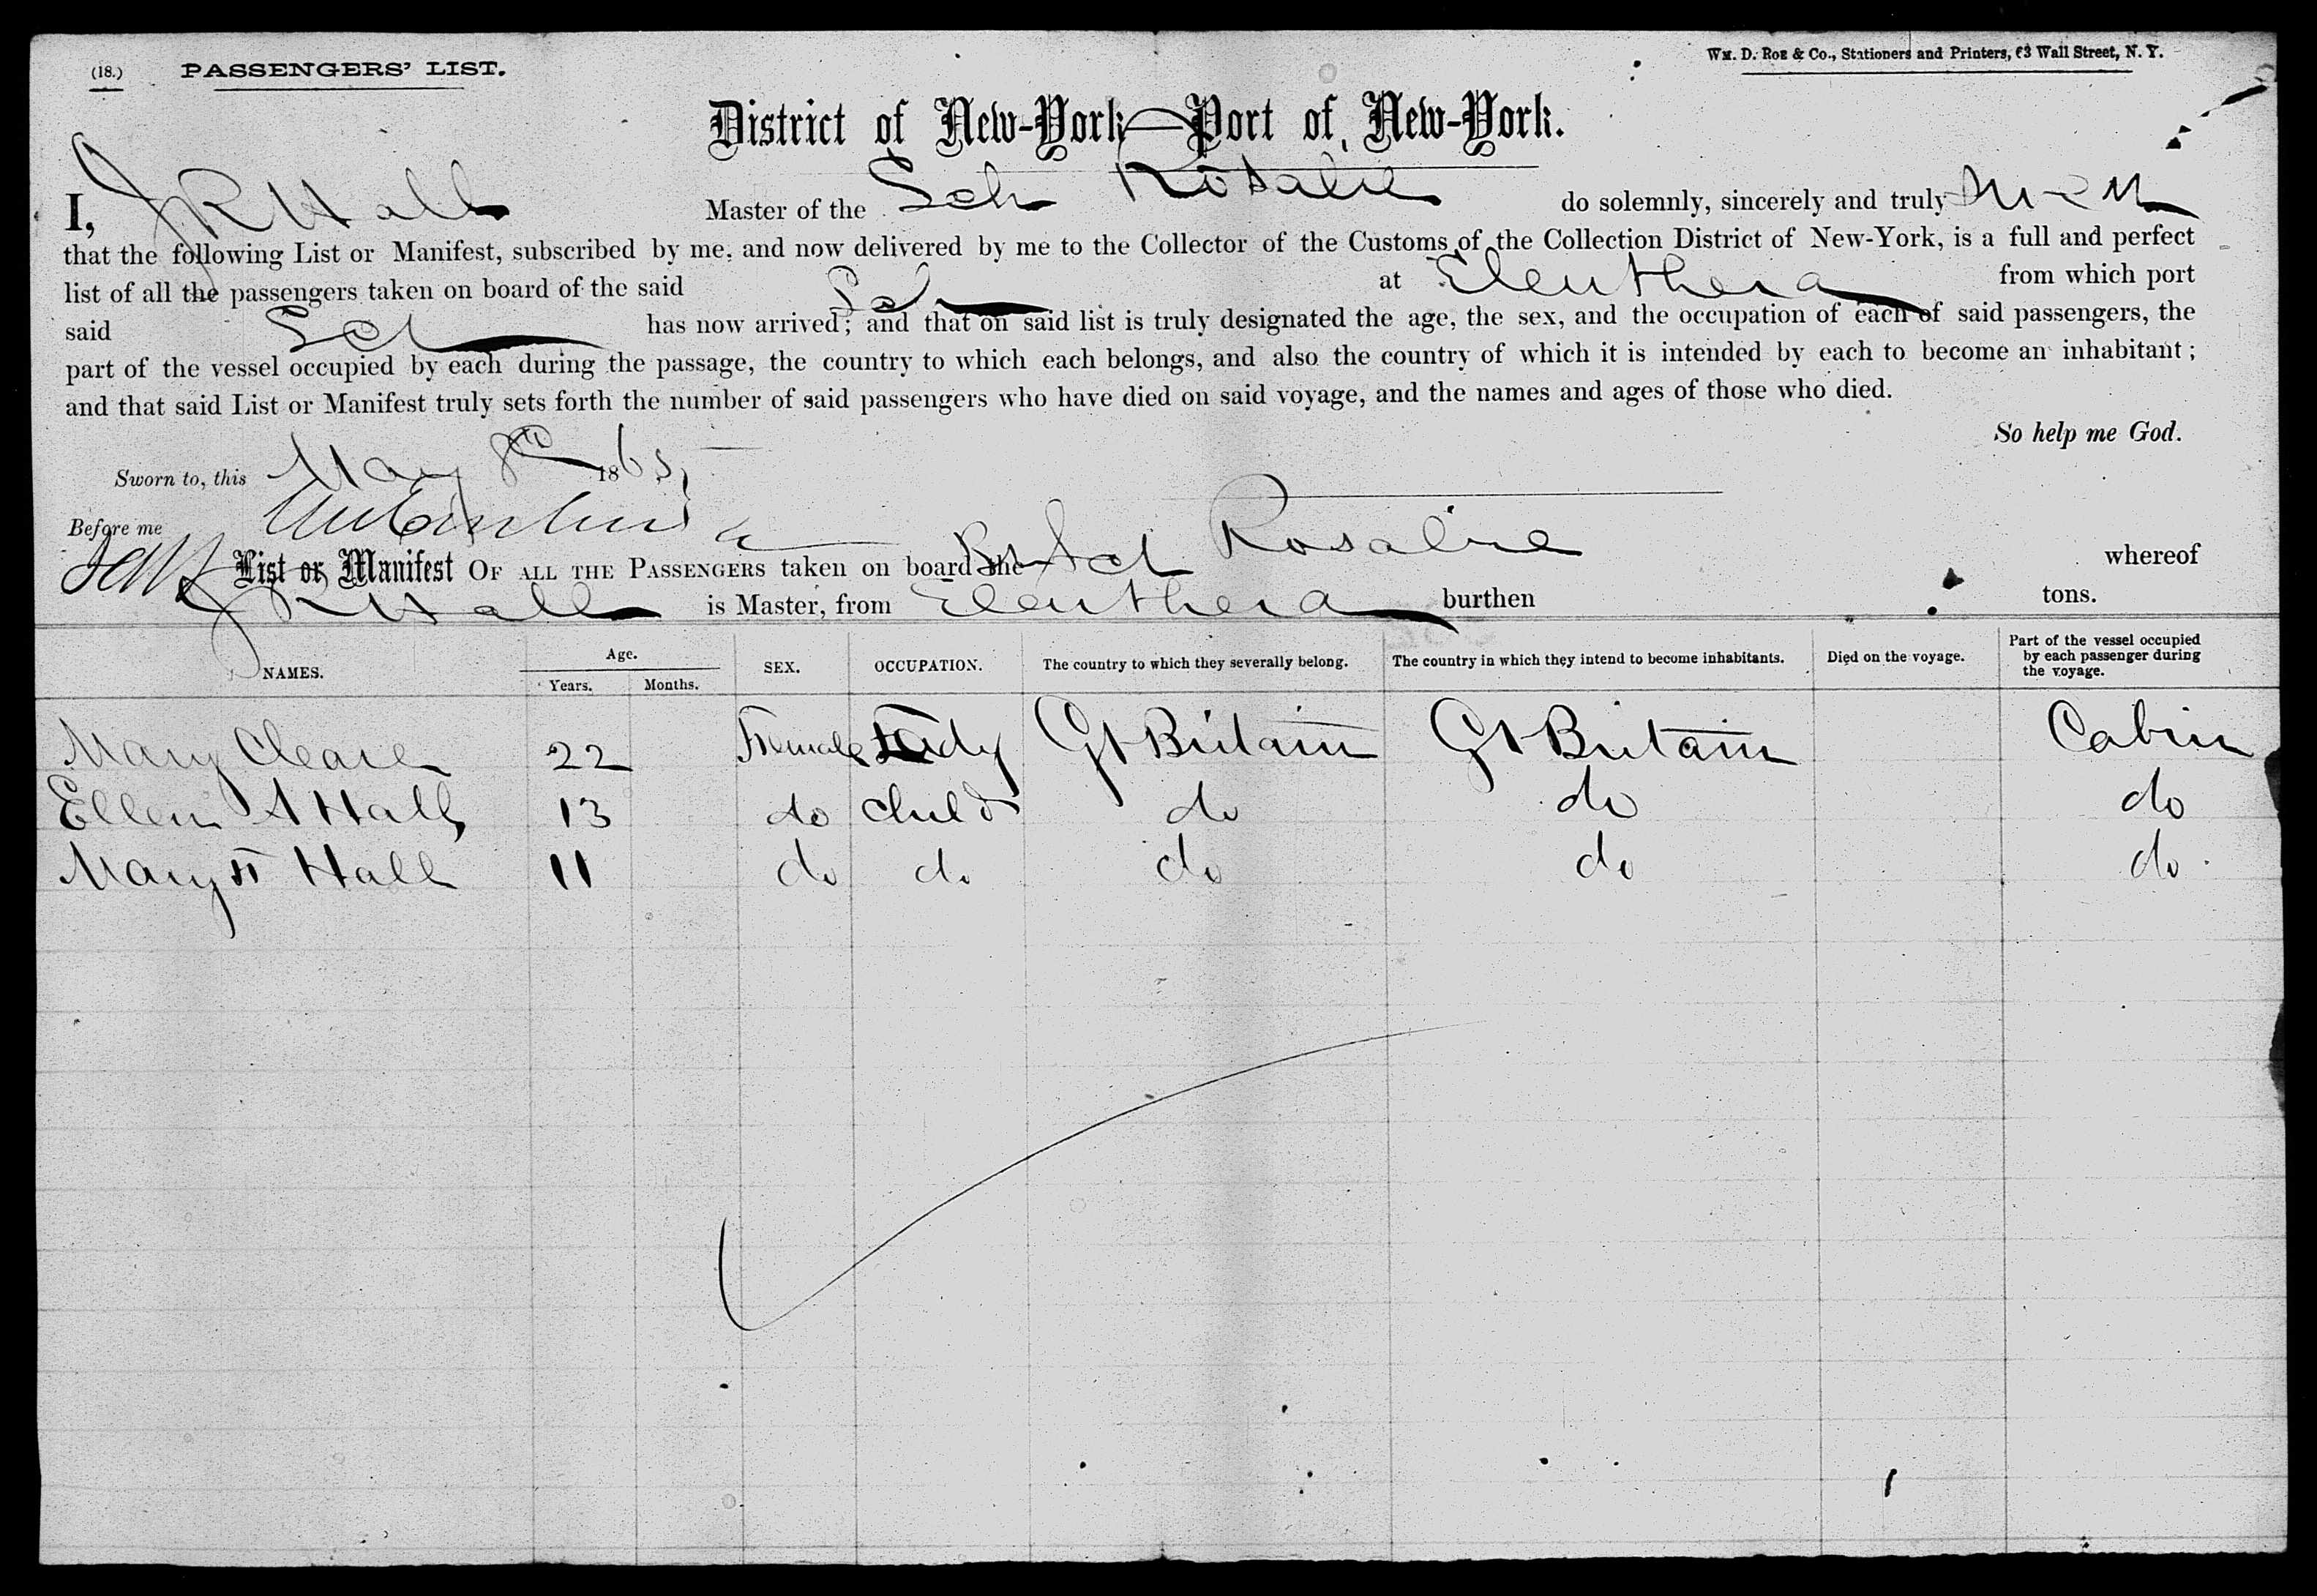 (18.) PASSENGERS' LIST.
Wm. D. Roe & Co., Stationers and Printers, 63 Wall Street, N. Y.
District of New-York—Port of New-York.
I, J R Hall Master of the Sch Rosalie do solemnly, sincerely and truly
that the following List or Manifest, subscribed by me, and now delivered by me to the Collector of the Customs of the Collection District of New-York, is a full and perfect
list of all the passengers taken on board of the said Sch at Eleuthera from which port
said Sch has now arrived; and that on said list is truly designated the age, the sex, and the occupation of each of said passengers, the
part of the vessel occupied by each during the passage, the country to which each belongs, and also the country of which it is intended by each to become an inhabitant;
and that said List or Manifest truly sets forth the number of said passengers who have died on said voyage, and the names and ages of those who died.
So help me God.
Sworn to, this May 8th 1865,
Before me
List or Manifest OF ALL THE PASSENGERS taken on board the Br Sch Rosalie whereof
J R Hall is Master, from Eleuthera burthen tons.
NAMES. Age. Years. Months. SEX. OCCUPATION. The country to which they severally belong. The country in which they intend to become inhabitants. Died on the voyage. Part of the vessel occupied by each passenger during the voyage.
Mary Cleare 22 Female Lady Gt Britain Gt Britain Cabin
Ellen A Hall 13 do Child do do do
Mary H Hall 11 do do do do do